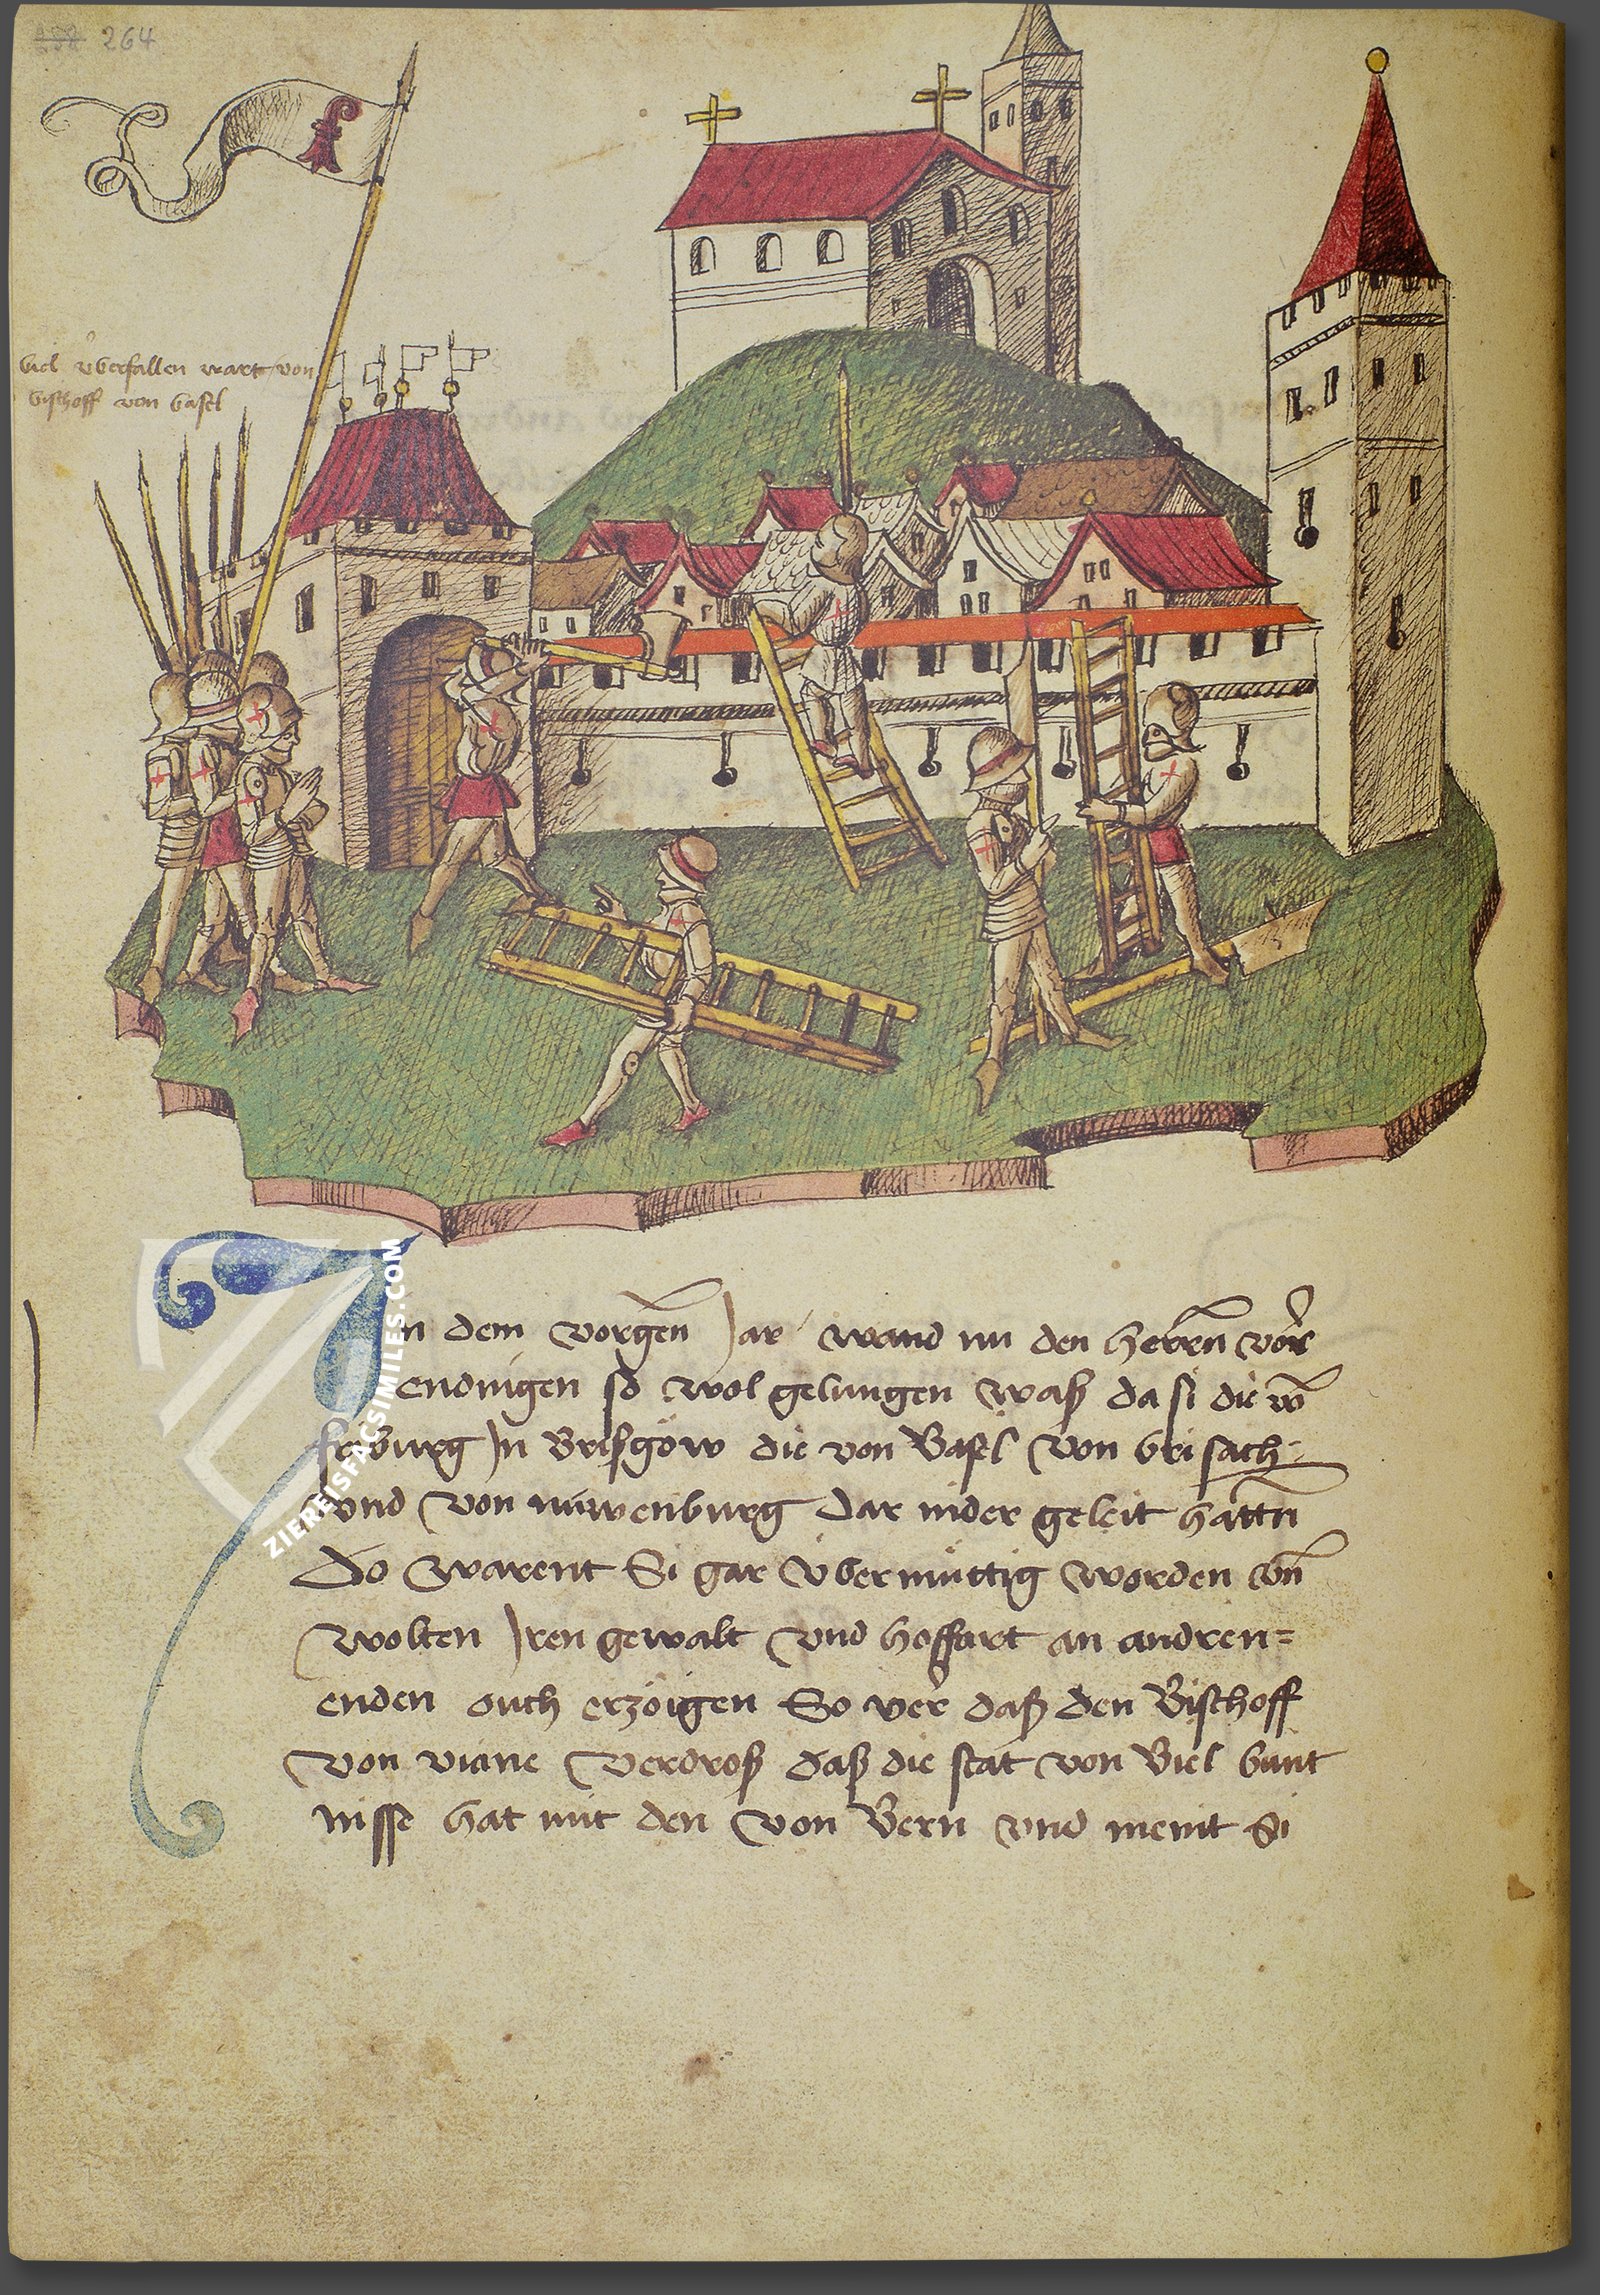 258 264
biel überfallen wart von
bischoff von basel
In dem vorgen̄ Jar wand nu den herren vor
endnigen so wol gelungen waß da si die vō
friburg Jn Brißgöw die von Basel von brisach
vnd von nüwenburg dar nider geleit hattn̄
Do warent Si gar übermüttig worden vn̄
wolten Jren gewalt vnd hoffart an andren
enden ouch erzöigen So ver daß den Bischoff
von viane verdroß daß die stat von Biel bunt
nisse hat mit den von Bern vnd meint Si
ZIEREISFACSIMILES.COM